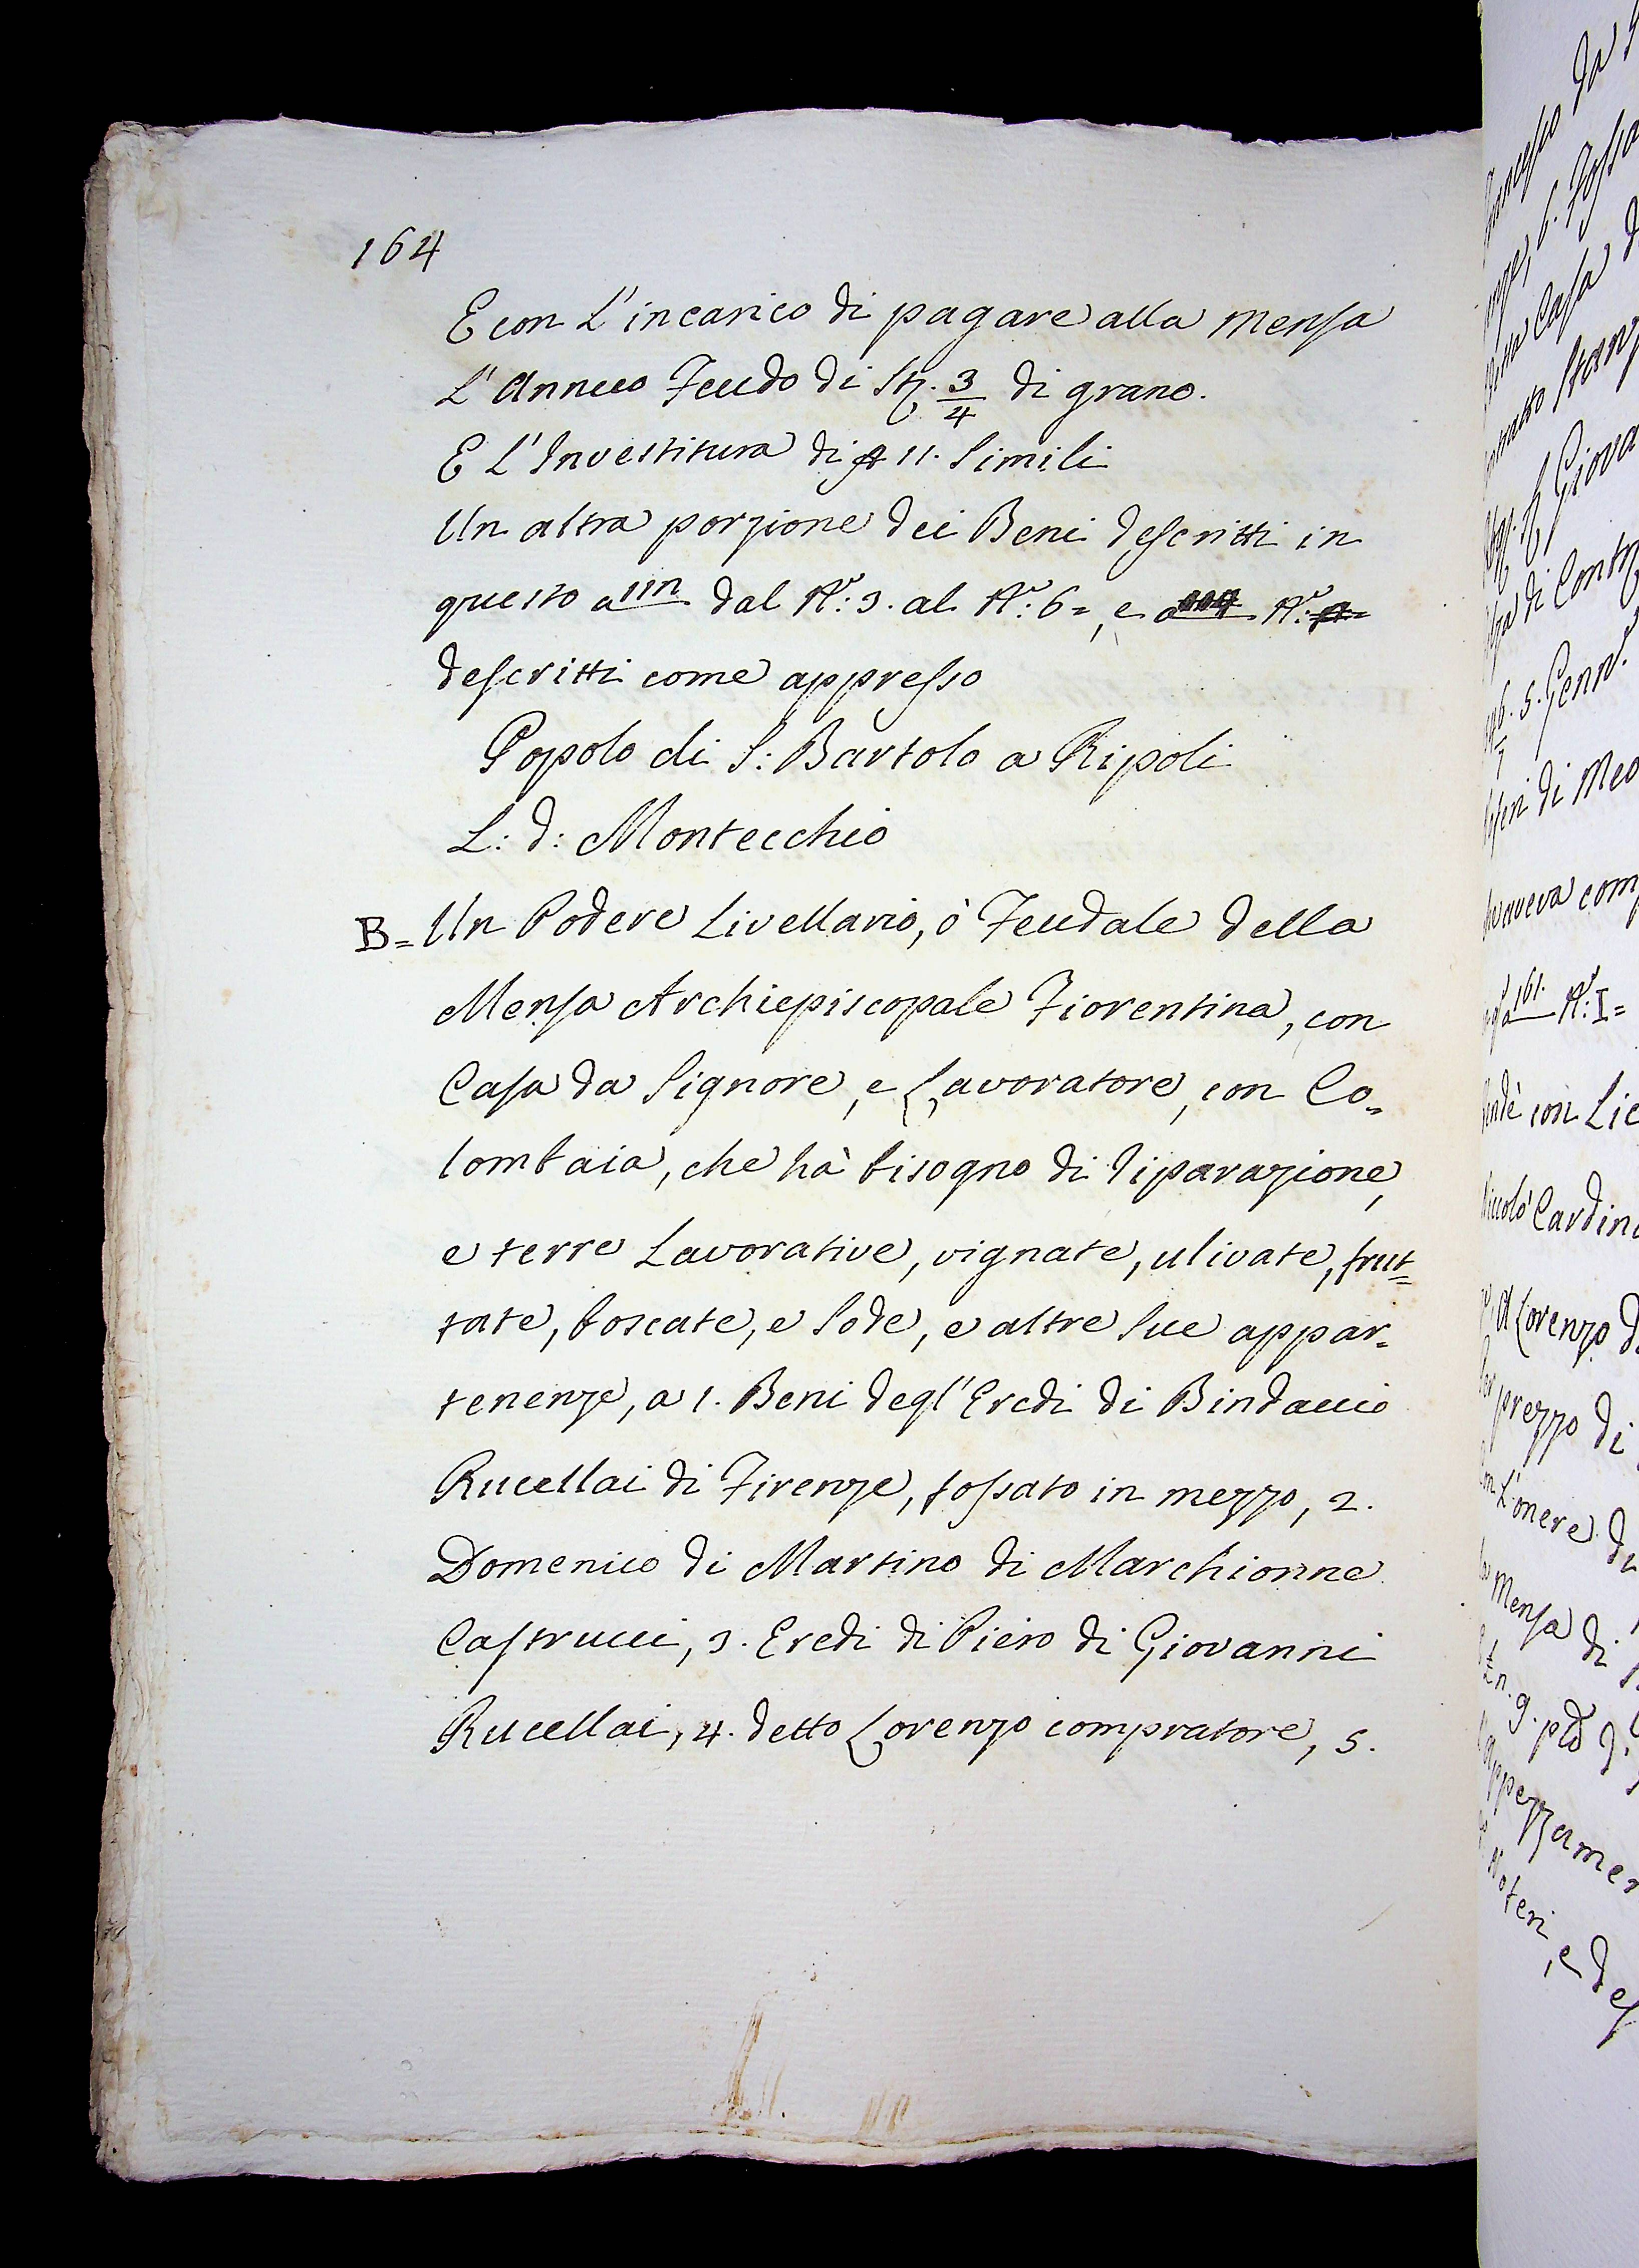 164
E con L'incarico di pagare alla Mensa
L'Annuo Feudo di St. 3/4 di grano.
E L'Investitura di 11. Simili
Un altra porzione dei Beni descritti in
questo a dal N.º: 3. al N.º: 6=, e a N.º:
descritti come appresso
Popolo di S: Bartolo a Ripoli
L: d: Montecchio
B= Un Podere Livellario, ò Feudale della
Mensa Archiepiscopale Fiorentina, con
Casa da Signore, e Lavoratore, con Co=
lombaia, che hà bisogno di riparazione,
e terre Lavorative, vignate, ulivate, frut=
tate, boscate, e Sode, e altre Sue appar=
tenenze, a 1. Beni degl'Eredi di Bindaccio
Rucellai di Firenze, fossato in mezzo, 2.
Domenico di Martino di Marchionne
Castrucci, 3. Eredi di Piero di Giovanni
Rucellai, 4. detto Lorenzo compratore, 5.
Casa
Giova
di Contr
5. Genn.º
di Meo
aveva com
161. N.º: I=
con Lic
Cardin
Lorenzo
prezzo di
L'onere
Mensa di